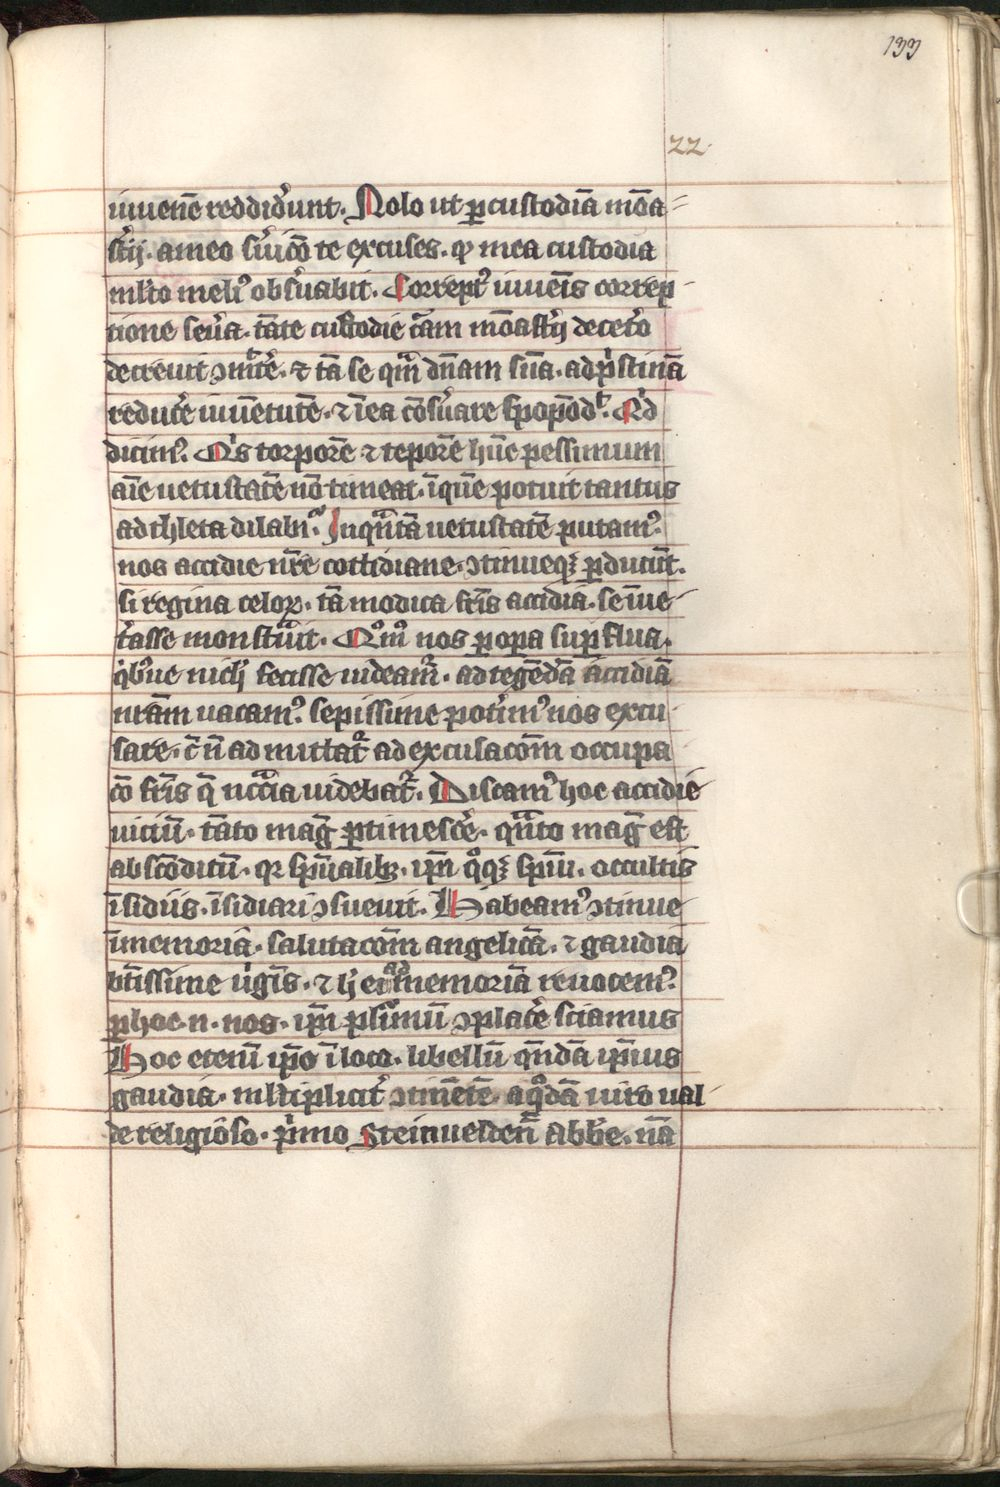 133
22
iuuenē reddid̓unt. Nolo ut ꝑ custodiā mōa⸗
st̓ij. a meo s̓uicō te excuses. qꝫ mea custodia
mlto meli᷒ obs̓uabit. Correpꝰ iuuēīs correp⸗
tione seu̓a. tāte custodie c̄am mōast̓ij decet̓o
decreuit ꝯmitt̓e. ⁊ tā se qm̄ dn̄am suā. ad p̓stinā
reduc̓e iuuētutē. ⁊ ī ea cōs̓uare ꝓpōd. Qͥd
dicim᷒. Qͥs torporē ⁊ teporē hūc pessimum
aīe uetustatē nō timeat. ī quē potuit tantus
adthleta dilabi. In qͣntā uetustatē putam᷒
nos accidie nr̄e cottidiane. ꝯtinueqꝫ ꝑducūt.
si regina celoꝝ. tā modica fr̄is accidia. se īue⸗
t̓asse monstͣuit. Qͦm᷒ nos ꝑ opa suꝑflua.
qͥb᷒ ue nich fecisse uideam̄. ad tegēdā accidiā
nr̄am uacam᷒. sepissime pot̓im᷒ nos excu⸗
sare. c̄ n̄ admittatͬ ad excusacōm occupa
cō fr̄is q̄ nccͣia uidebatͬ. Discam᷒ hoc accidie
uiciū. tāto maḡ ꝑtimesc̓e. qͣnto maḡ est
abscōditū. qꝛ spūalibꝫ. ip̄i qͦqꝫ spūi. occultis
īsidiis. īsidiari ꝯsueuit. Habeam᷒ ꝯtinue
ī memoriā. salutacōm angelicā. ⁊ gaudia
btīssime ūgīs. ⁊ h ei ad memoriā reuocem᷒.
ꝑ hoc. n. nos. ip̄i plīmū ꝯplac̓e sciamus
Hoc etenī ip̄o ī loco. libellū qn̄dā ip̄ius
gaudia. mltiplicit̓ ꝯtinētē. a qͦdā uiro ual⸗
de religioso. p̓mo Steinueldēn̄ Abb̄e. nā